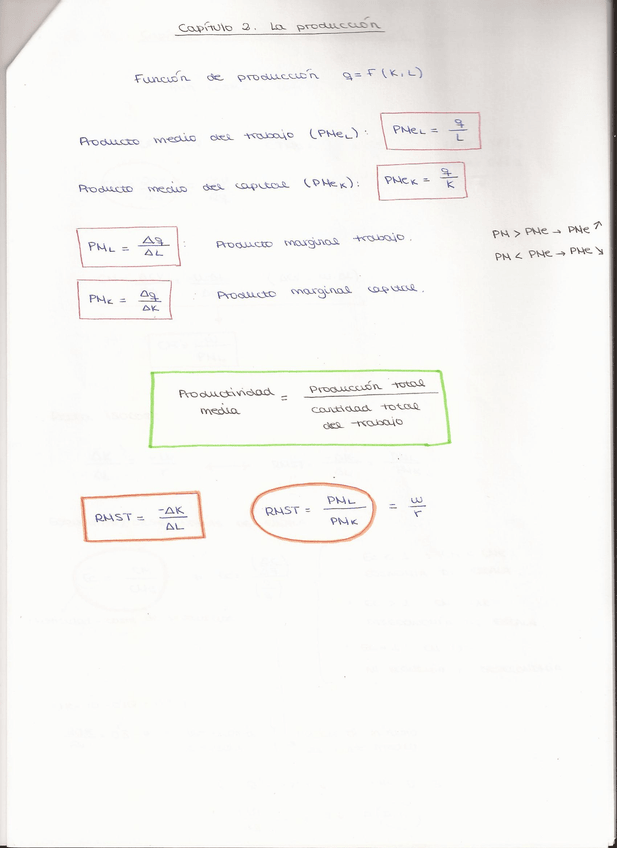 Capítulo 2. La producción
Función de producción q = F (K, L)
Producto medio del trabajo (PMeL): PMeL = q/L
Producto medio del capital (PMeK): PMeK = q/K
PML = Δq/ΔL : Producto marginal trabajo.
PM > PMe → PMe ↗
PM < PMe → PMe ↘
PMK = Δq/ΔK Producto marginal capital.
Productividad media = Producción total / cantidad total del trabajo
RMST = -ΔK/ΔL
RMST = PML/PMK = w/r